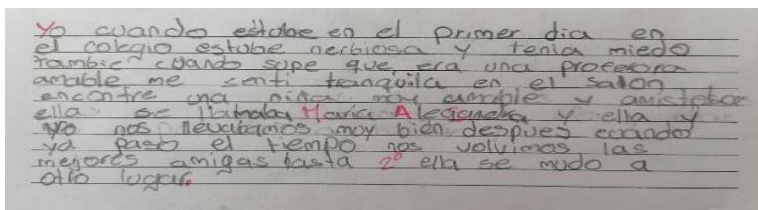 Yo cuando estube en el primer dia en
el colegio estube nerbiosa y tenia miedo
tambie cuando supe que era una profesora
amable me senti tranquila en el salon
encontre una niña muy amable y amistosa
ella se llamaba Maria Alegandra y ella y
yo nos llevabamos muy bien despues cuando
ya paso el tiempo nos volvimos las
mejores amigas hasta 2° ella se mudo a
otro lugar.